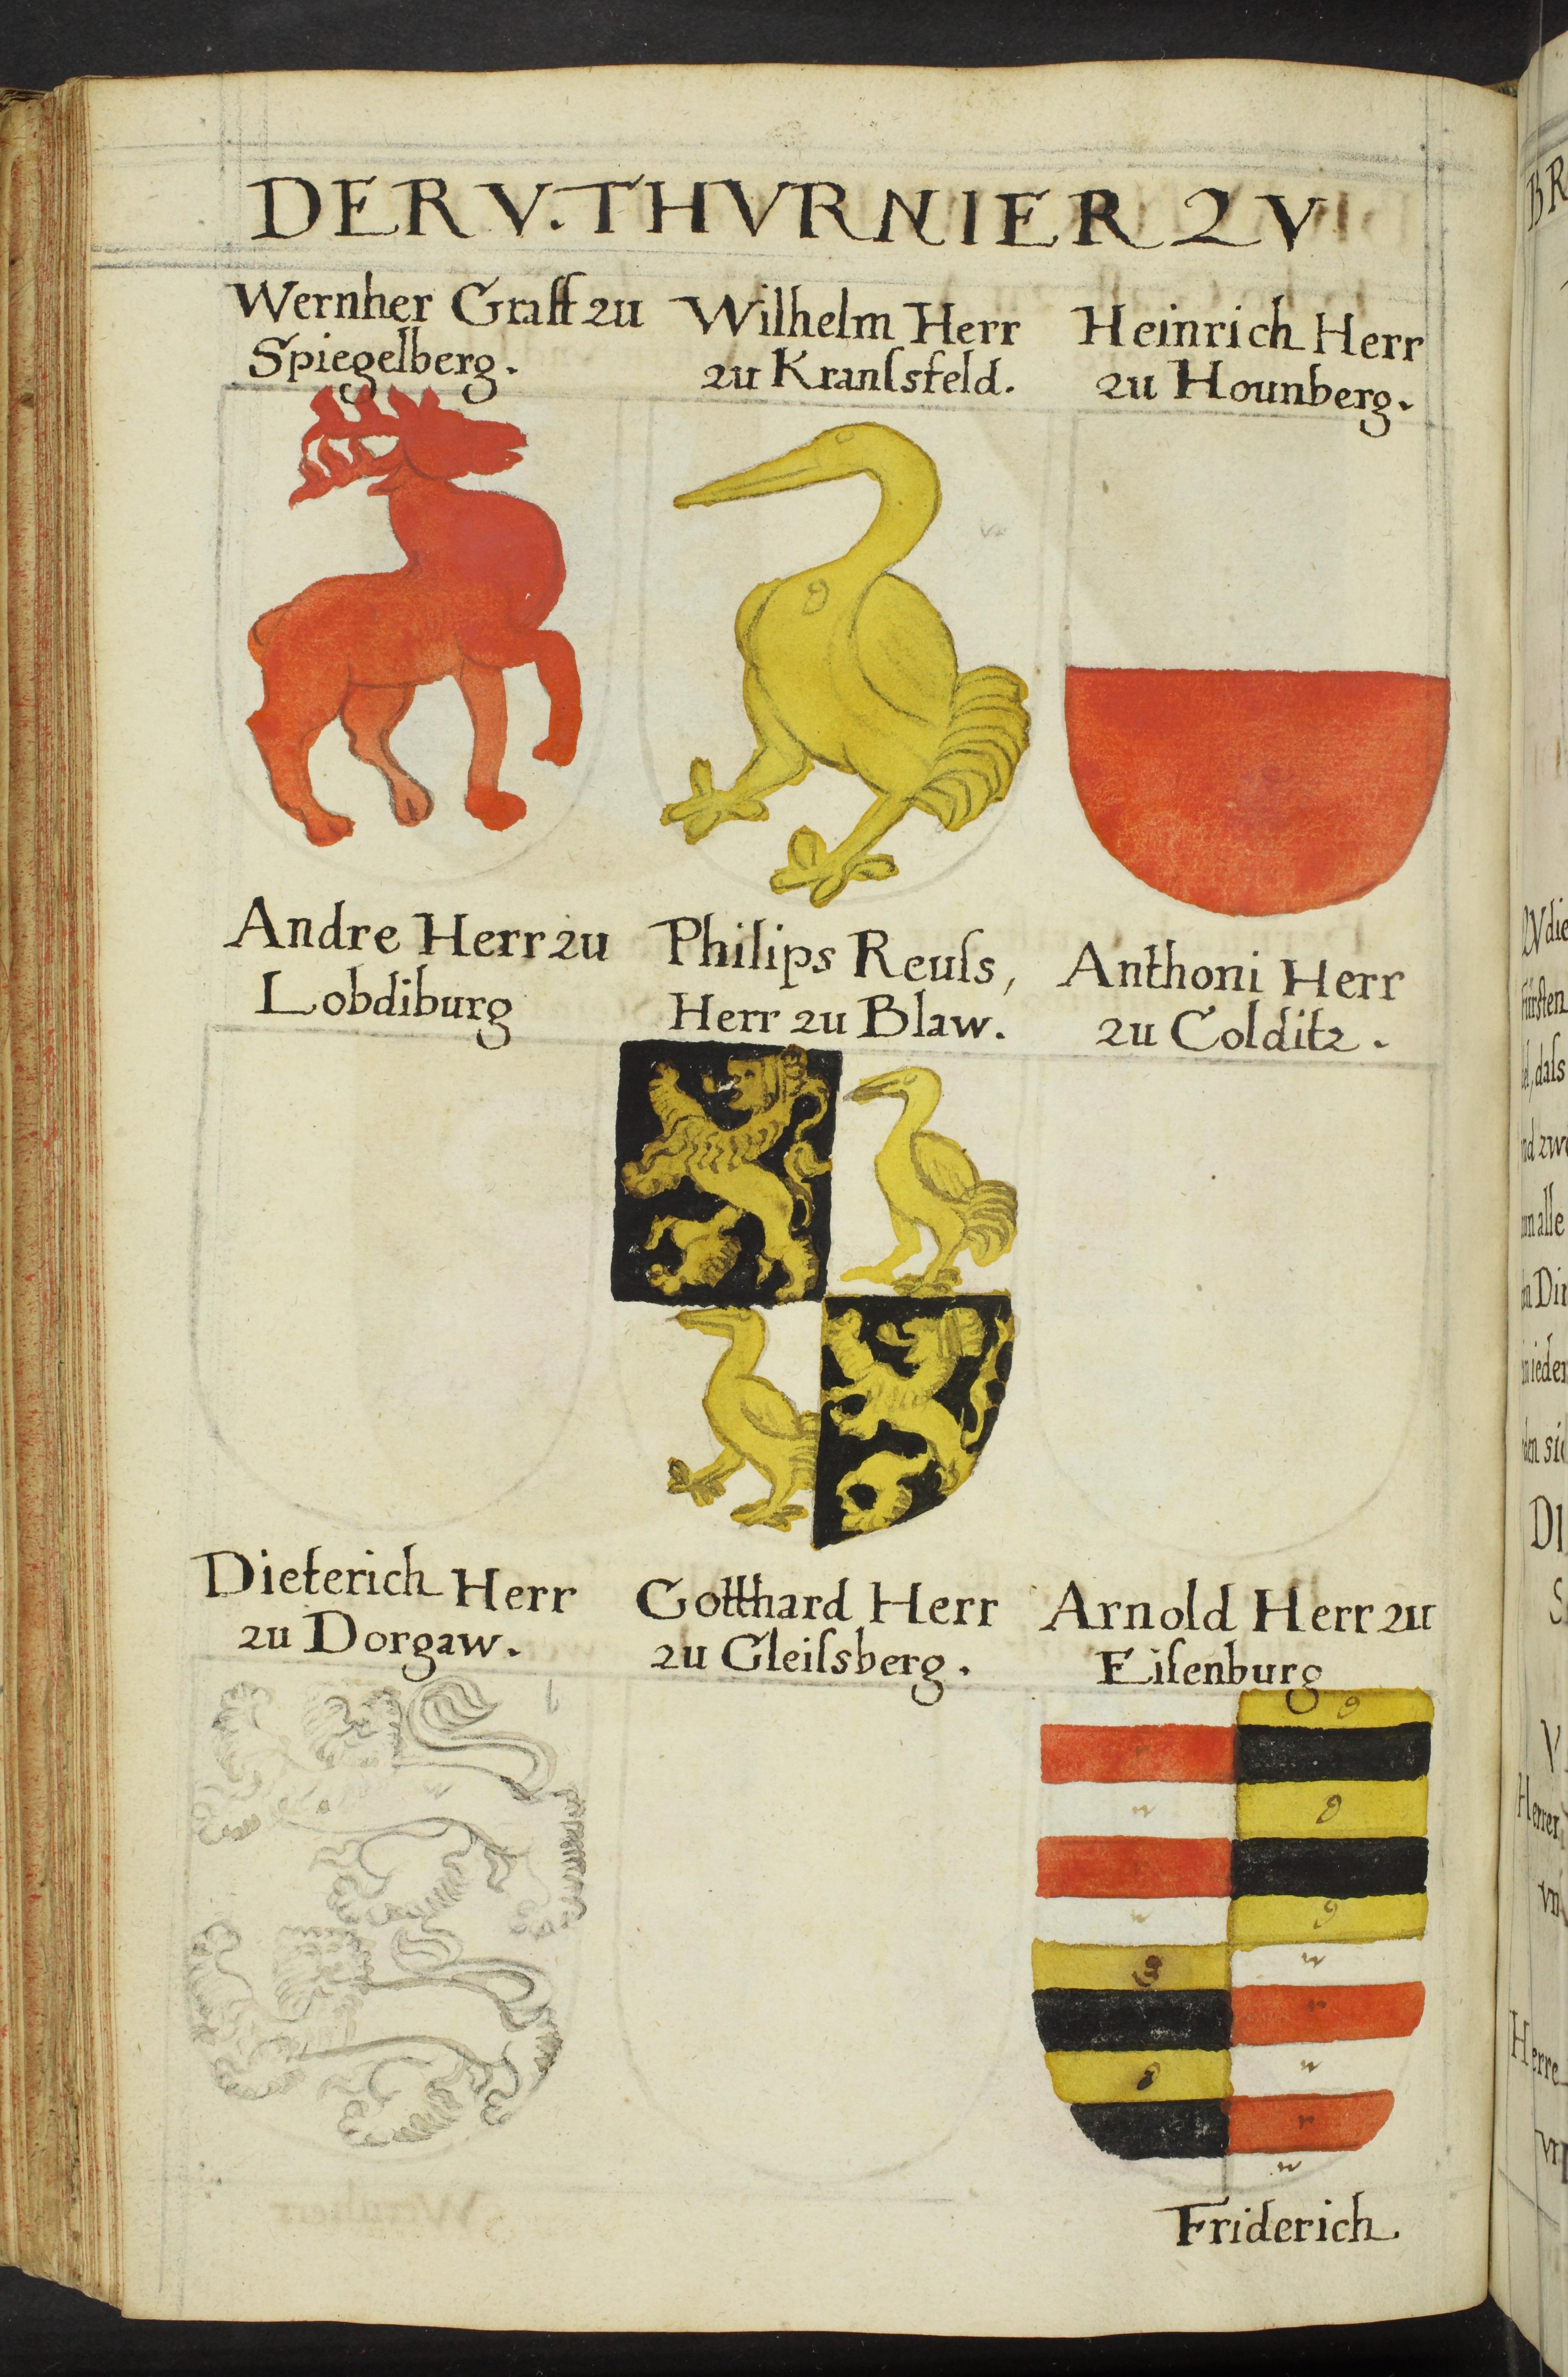 DER V. THVRNIER ZV
Wernher Graff zu
Spiegelberg.
Wilhelm Herr
zu Kranſsfeld.
Heinrich Herr
zu Hounberg.
Andre Herr zu
Lobdiburg
Philips Reuſs,
Herr zu Blaw.
Anthoni Herr
zu Colditz.
Dieterich Herr
zu Dorgaw.
Gotthard Herr
zu Gleiſsberg.
Arnold Herr zu
Eiſenburg
g
g
w
g
w
g
w
r
g
w
r
w
Friderich
BR
ZV die
Fürsten
daſs
alle
ieder